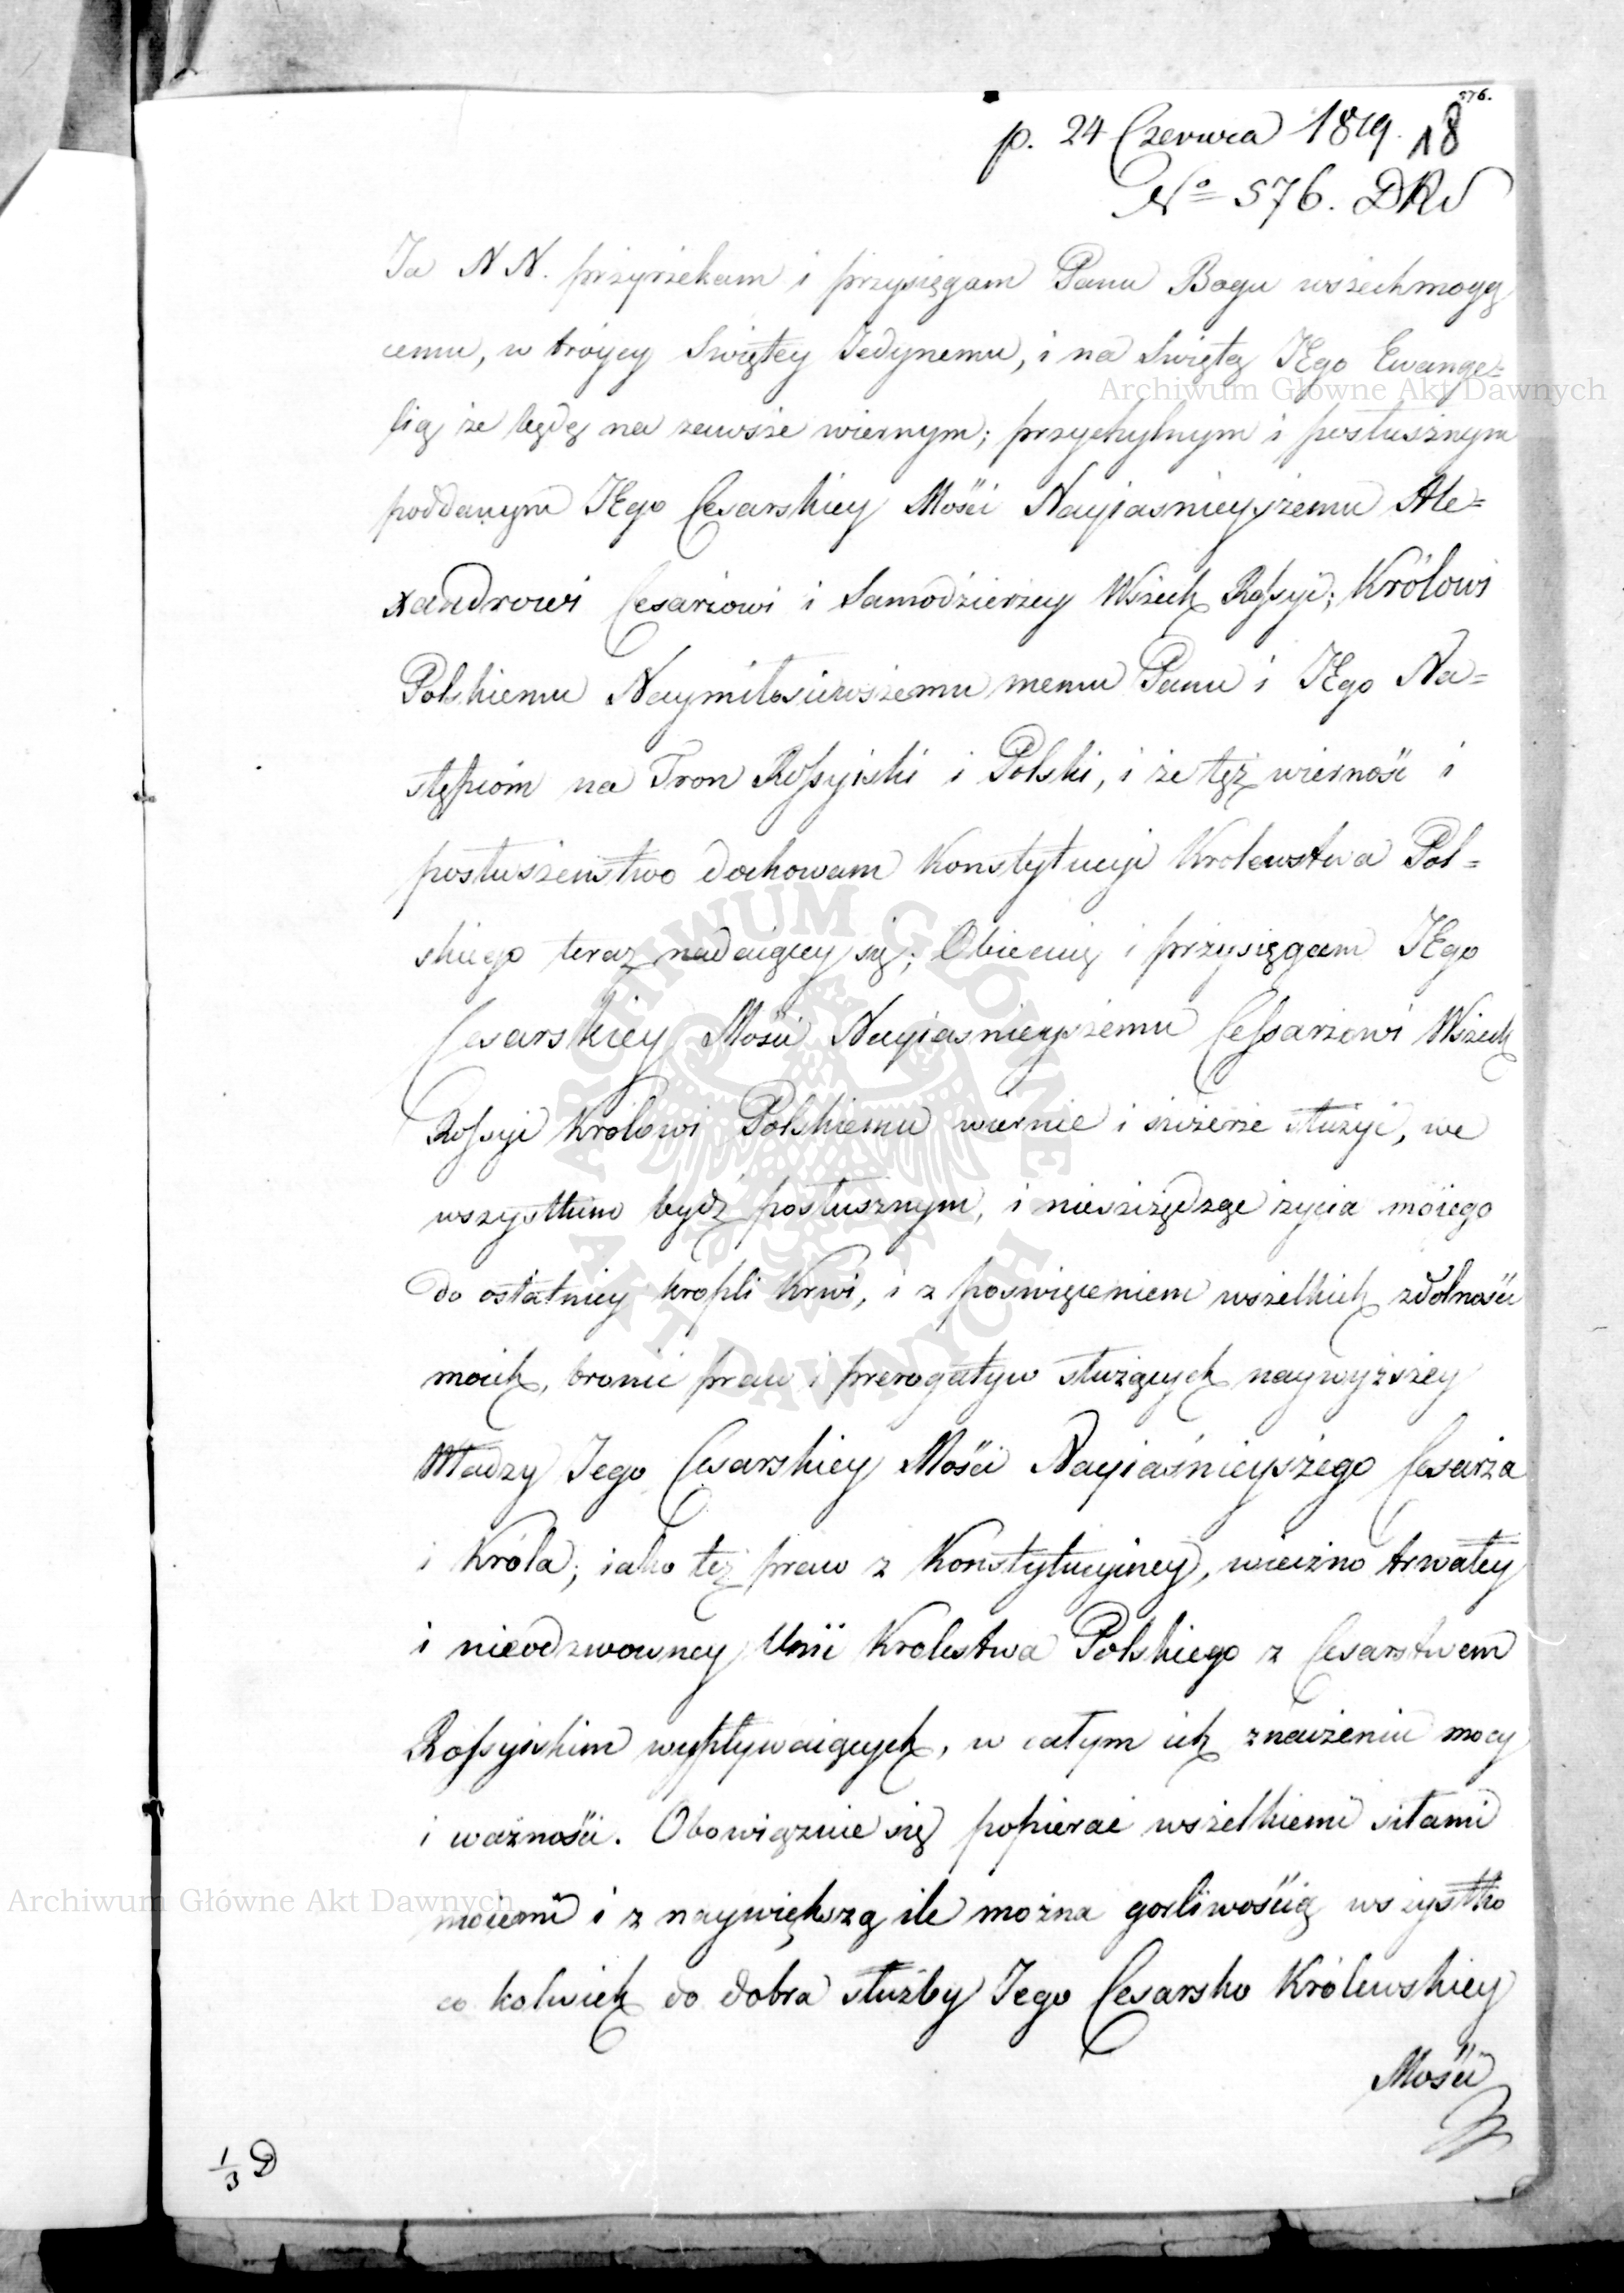 576.
p. 24 Czerwca 1819. 18
No 576. DRS
Ja N N. przyrzekam i przysięgam Panu Bogu wszechmogą
cemu, w troycy Swiętey Jedynemu, i na Swiętą JEgo Ewange=
lią że będę na zawsze wiernym; przychylnym i posłusznym
poddanym JEgo Cesarskiey Mości Nayiasnieyszemu Ale=
xandrowi Cesarzowi i Samodzierzcy Wszech Rossyi; Królowi
Polskiemu Naymiłosciwszemu memu Panu i JEgo Na=
stępcóm na Tron Rossyiski i Polski, i że tęż wierność i
posłuszeństwo dochowam Konstytucyi Krolewstwa Pol=
skiego teraz nadaiącey się; Obiecuię i przysięgam JEgo
Cesarskiey Mości Nayiasnieyszemu Cessarzowi Wszech
Rossyi Królowi Polskiemu wiernie i szczerze służyć, we
wszystkim bydź posłusznym, i nieszczędząc życia moiego
do ostatniey kropli Krwi, i z poswięceniem wszelkich zdolności
moich, bronić praw i prerogatyw służących naywyższey
Władzy Jego Cesarskiey Mości Nayiaśnieyszego Cesarza
i Króla; iako też praw z Konstytucyiney, wieczno trwałey
i nieodzwowney Unii Krolestwa Polskiego z Cesarstwem
Rossyiskim wypływaiących, w całym ich znaczeniu mocy
i ważności. Obowiązuie się popierać wszelkiemi siłami
moiemi i z naywiększą ile można gorliwością wszystko
co kolwiek do dobra służby Jego Cesarsko Królewskiey
Mości
1/3 D
Archiwum Główne Akt Dawnych
Archiwum Główne Akt Dawnych
ARCHIWUM GŁÓWNE AKT DAWNYCH